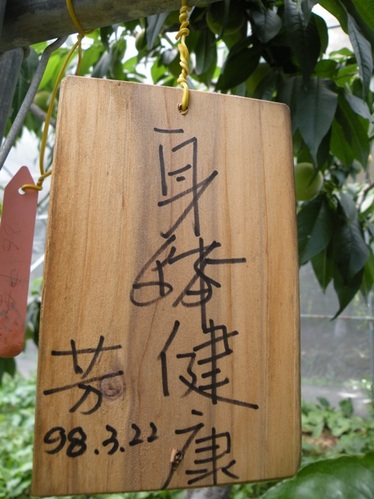 身躰健康
芳
98.3.22